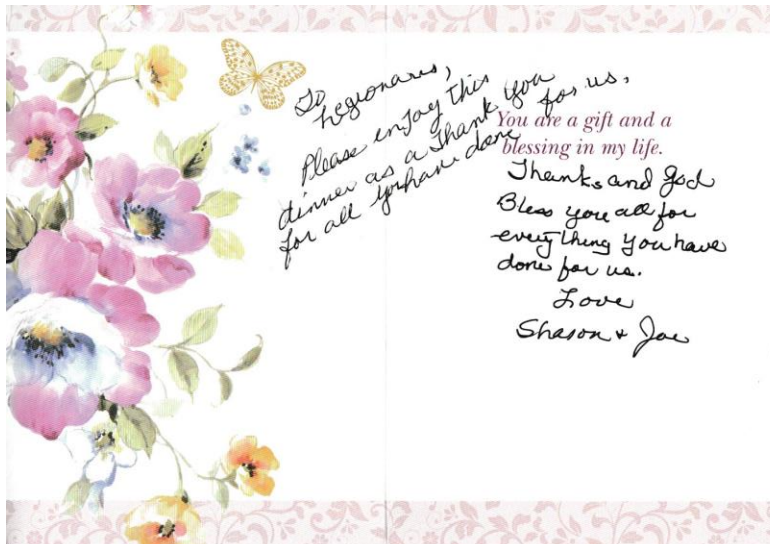 To
Legionares,
Please enjoy this
dinner as a Thank you
for all you have done for us.
You are a gift and a
blessing in my life.
Thanks and God
Bless you all for
everything you have
done for us.
Love
Sharon + Joe